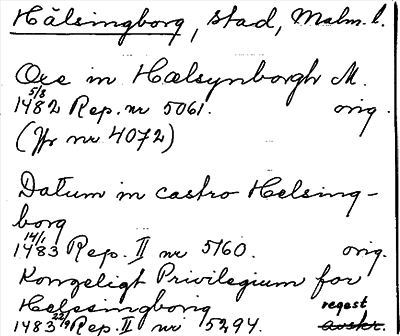 Hälsingborg, stad, Malm. l.
Ore in Hælsynborgh M.
5/8
1482 Rep. nr 5061. orig.
(Jfr nr 4072)
Datum in castro Helsing-
borg
14/1
1483 Rep. II nr 5160. orig.
Kongeligt Privilegium for
Helsingborg regest
22/9
1483 Rep. II nr 5294. avskr.